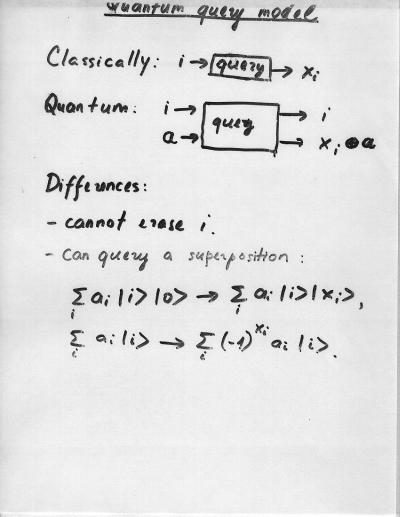 Quantum query model
Classically: i → query → xᵢ
Quantum: i → query → i
a → → xᵢ ⊕ a
Differences:
- cannot erase i.
- can query a superposition:
∑ᵢ aᵢ |i> |0> → ∑ᵢ aᵢ |i> |xᵢ>,
∑ᵢ aᵢ |i> → ∑ᵢ (-1)^xᵢ aᵢ |i>.